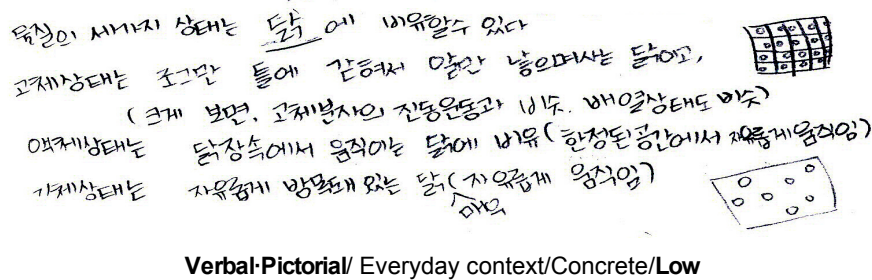 물질의 세가지 상태는 닭에 비유할수 있다
고체상태는 조그만 틀에 갇혀서 알만 낳으며사는 닭이고,
(크게 보면, 고체분자의 진동운동과 비슷. 배열상태도 비슷)
액체상태는 닭장속에서 움직이는 닭에 비유(한정된공간에서 자유롭게움직임)
기체상태는 자유롭게 방목돼 있는 닭(매우 자유롭게 움직임)
Verbal·Pictorial/ Everyday context/Concrete/Low